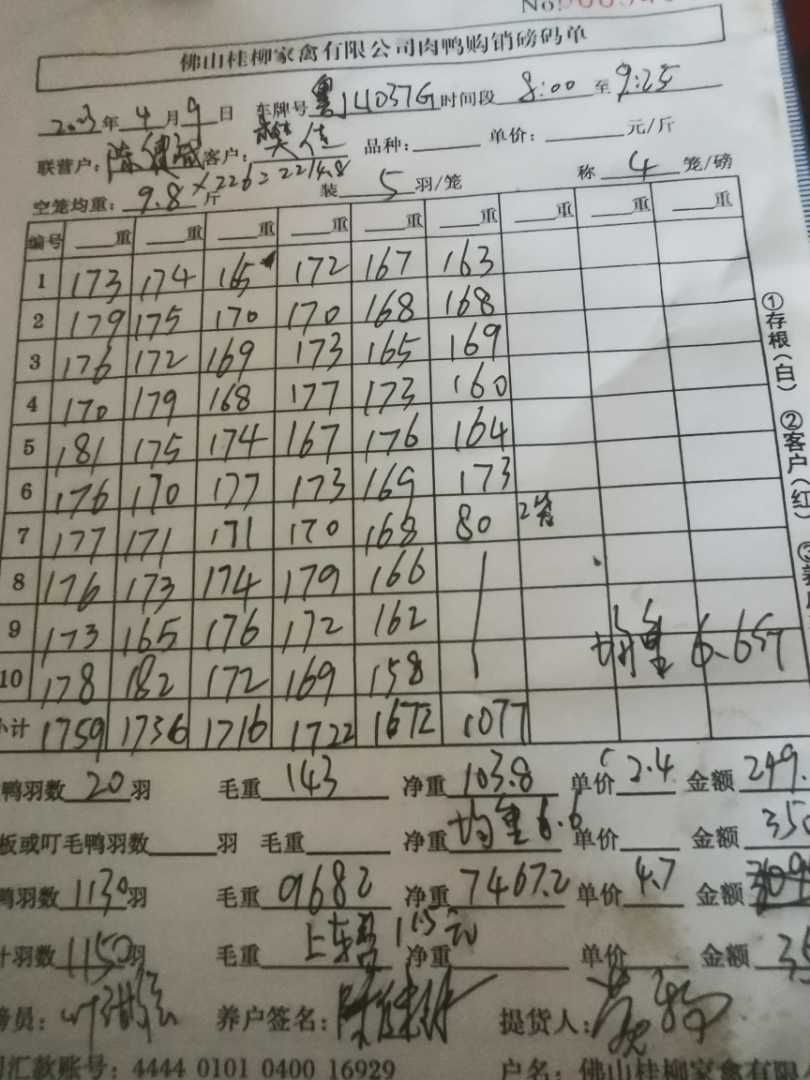 No:
佛山桂柳家禽有限公司肉鸭购销磅码单
2023年4月9日 车牌号粤J4037G时间段 8:00 至 9:25
联营户: 陈 客户: 樊佳 品种: 单价: 元/斤
空笼均重: 9.8斤×226=2214.8 装 5 羽/笼 称 4 笼/磅
编号 重 重 重 重 重 重 重 重 重
1 173 174 165 172 167 163
2 179 175 170 170 168 168
3 176 172 169 173 165 169
4 170 179 168 177 173 160
5 181 175 174 167 176 164
6 176 170 177 173 169 173
7 177 171 171 170 168 80 2笼
8 176 173 174 179 166
9 173 165 176 172 162 均重 6.657
10 178 182 172 169 158
小计 1759 1736 1716 1722 1672 1077
鸭羽数 20 羽 毛重 143 净重 103.8 单价 2.4 金额 249.
板或叮毛鸭羽数 羽 毛重 净重 均重6.6 单价 金额 350
鸭羽数 1130羽 毛重 9682 净重 7467.2 单价 4.7 金额
计羽数 1150羽 毛重 上车 115元 净重 单价 金额 35
磅员: 养户签名: 陈 提货人:
汇款账号: 4444 0101 0400 16929 户名: 佛山桂柳家禽有限
①存根(白)
②客户(红)
③养